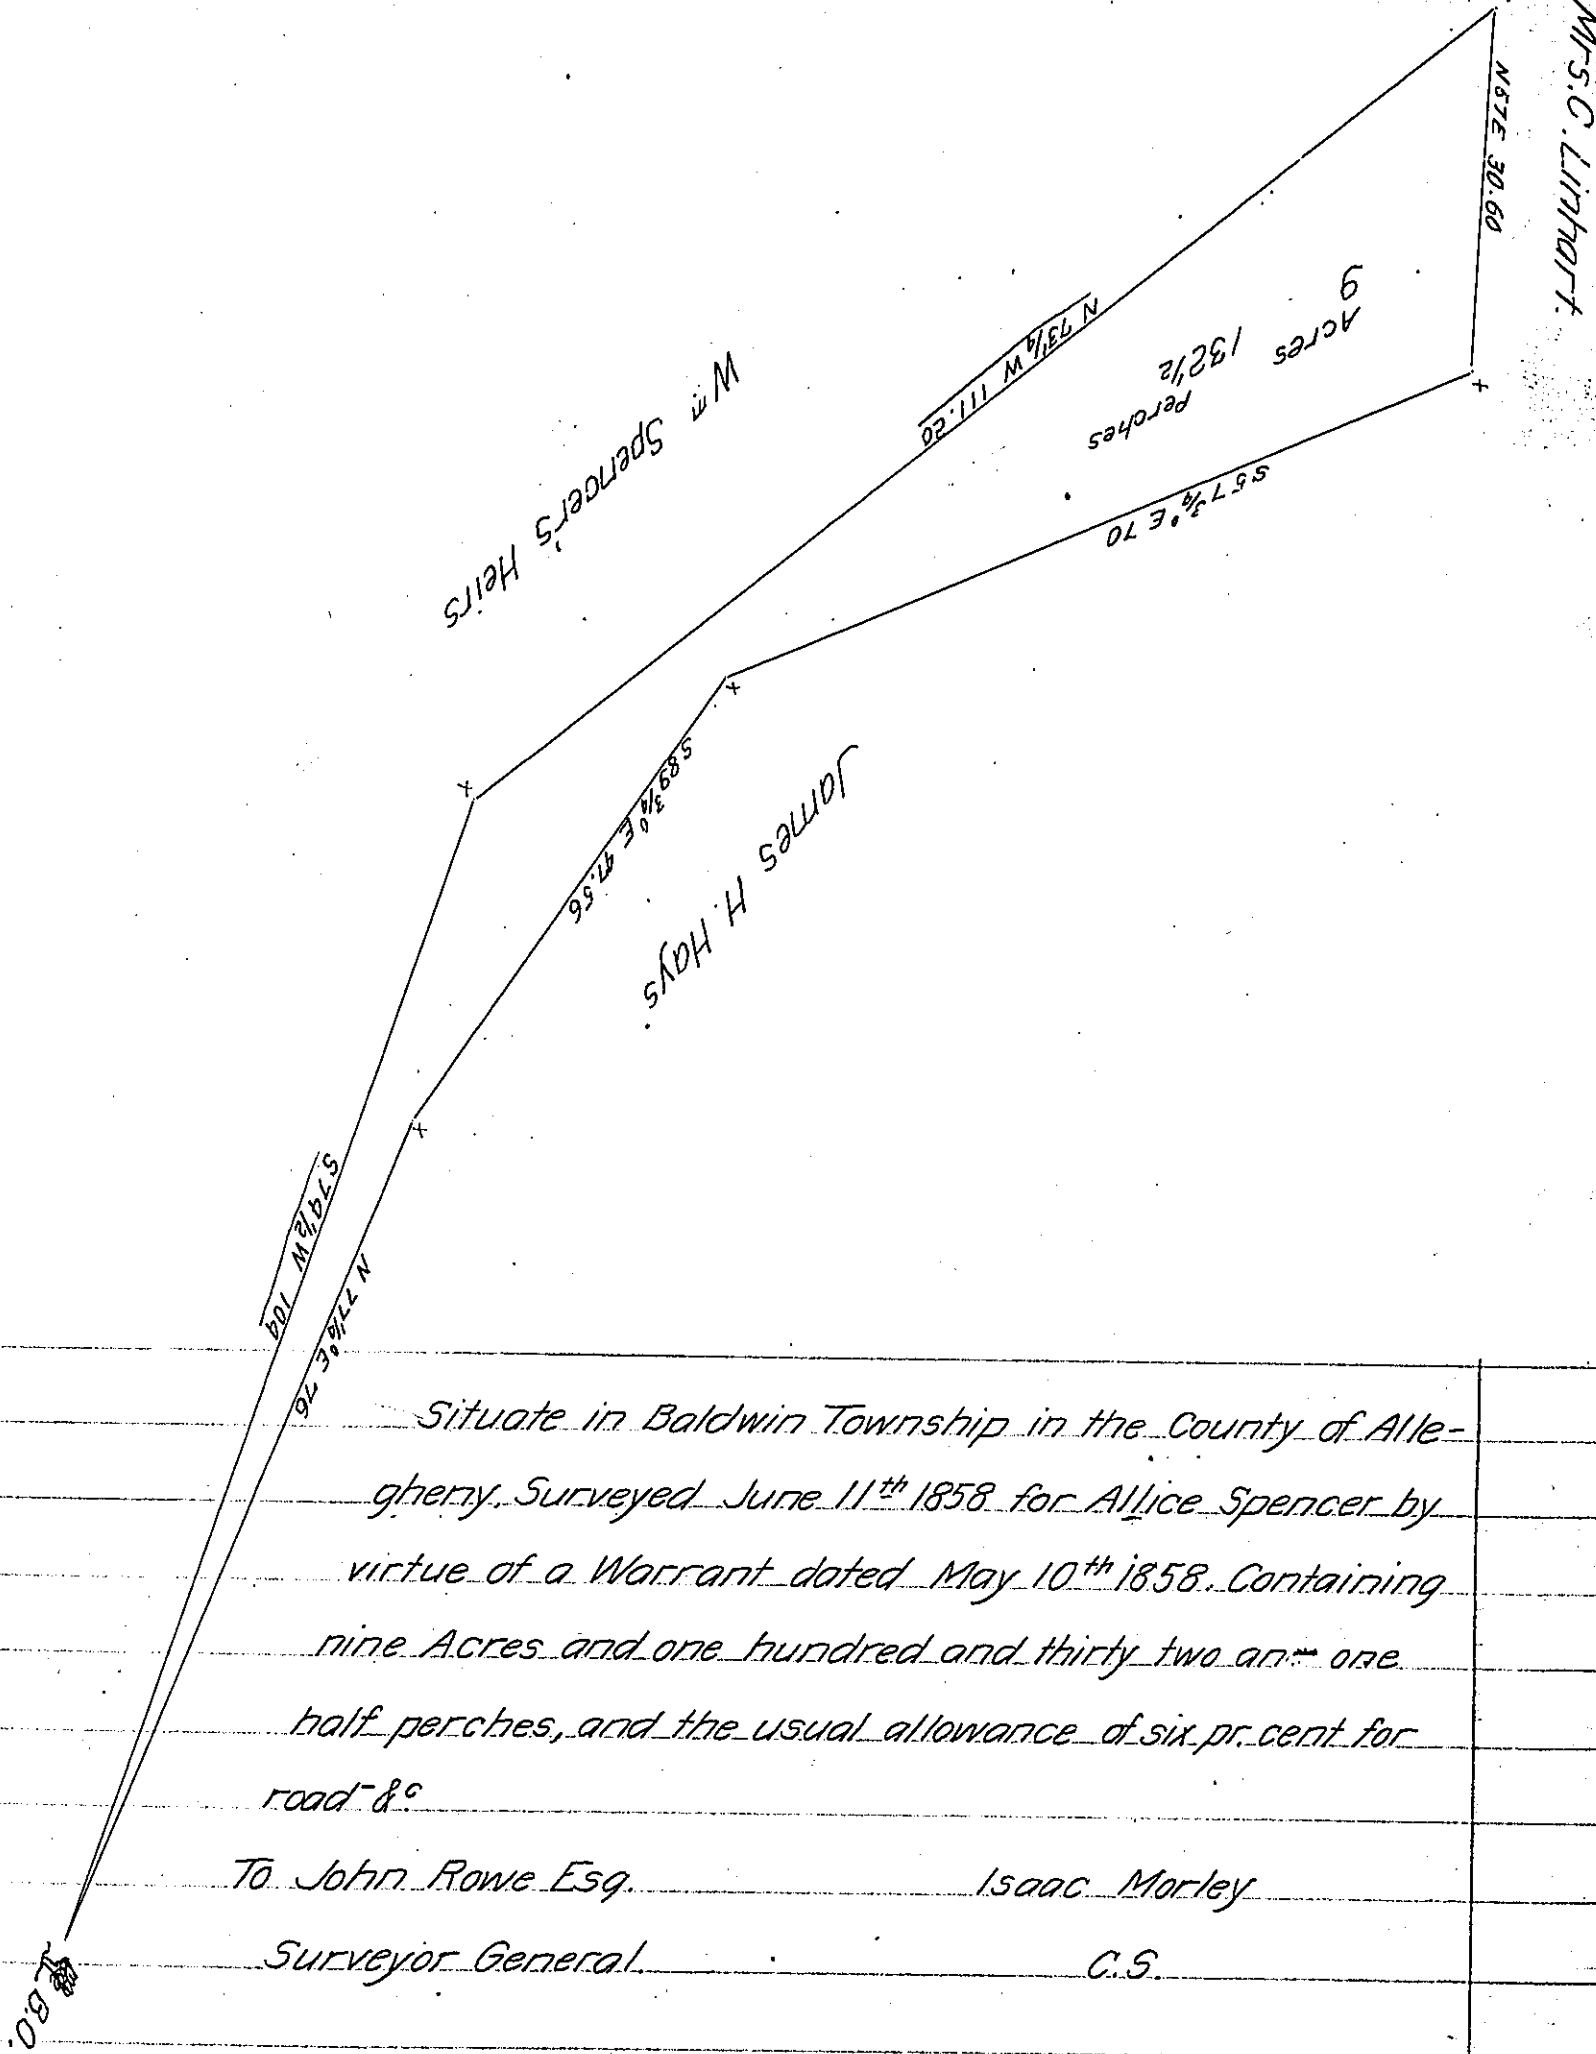 Mrs. C. Linhart.
N57E 30.60
9
Acres
132½
Perches
N 73¼ W 111.20
S 57¾° E 70
Wm Spencer's Heirs
James H. Hays.
S 89¾° E 47.56
S 74½ W 104
N 77¼° E 76
B.O.
Situate in Baldwin Township in the County of Alle-
gheny. Surveyed June 11th 1858 for Allice Spencer by
virtue of a Warrant dated May 10th 1858. Containing
nine Acres and one hundred and thirty two an- one
half perches, and the usual allowance of six pr. cent for
road- &c
To John Rowe Esq. Isaac Morley
Surveyor General. C.S.